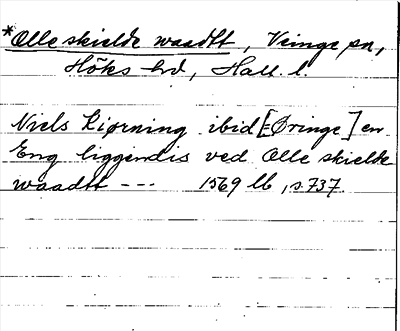 *Olle skielde waadtt, Veinge sn,
Höks hd, Hall. l.
Niels Kiørning ibid [= Øringe] en
Eng liggendis ved Olle skielde
waadtt --- 1569 lb, s. 737.